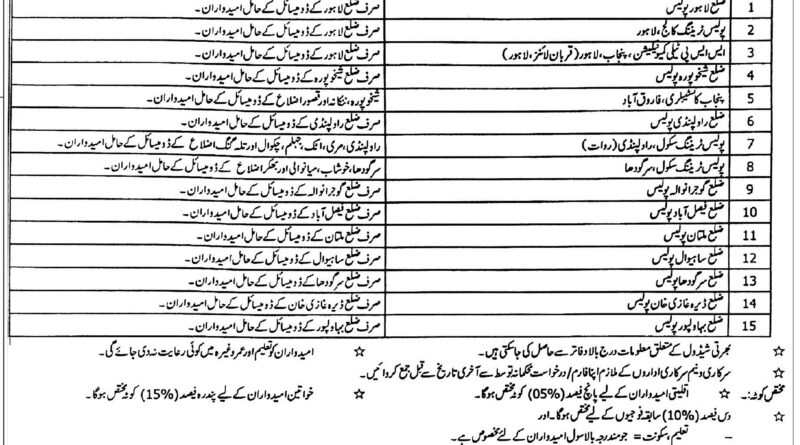 1 ضلع لاہور پولیس صرف ضلع لاہور کے ڈومیسائل کے حامل امیدواران۔
2 پولیس ٹریننگ کالج، لاہور صرف ضلع لاہور کے ڈومیسائل کے حامل امیدواران۔
3 ایس ایس پی ٹیلی کمیونیکیشن، پنجاب، لاہور (قربان لائنز، لاہور) صرف ضلع لاہور کے ڈومیسائل کے حامل امیدواران۔
4 ضلع شیخوپورہ پولیس صرف ضلع شیخوپورہ کے ڈومیسائل کے حامل امیدواران۔
5 پنجاب کانسٹیبلری، فاروق آباد شیخوپورہ، ننکانہ اور قصور اضلاع کے ڈومیسائل کے حامل امیدواران۔
6 ضلع راولپنڈی پولیس صرف ضلع راولپنڈی کے ڈومیسائل کے حامل امیدواران۔
7 پولیس ٹریننگ سکول، راولپنڈی (روات) راولپنڈی، مری، اٹک، جہلم، چکوال اور تلہ گنگ اضلاع کے ڈومیسائل کے حامل امیدواران۔
8 پولیس ٹریننگ سکول، سرگودھا سرگودھا، خوشاب، میانوالی اور بھکر اضلاع کے ڈومیسائل کے حامل امیدواران۔
9 ضلع گوجرانوالہ پولیس صرف ضلع گوجرانوالہ کے ڈومیسائل کے حامل امیدواران۔
10 ضلع فیصل آباد پولیس صرف ضلع فیصل آباد کے ڈومیسائل کے حامل امیدواران۔
11 ضلع ملتان پولیس صرف ضلع ملتان کے ڈومیسائل کے حامل امیدواران۔
12 ضلع ساہیوال پولیس صرف ضلع ساہیوال کے ڈومیسائل کے حامل امیدواران۔
13 ضلع سرگودھا پولیس صرف ضلع سرگودھا کے ڈومیسائل کے حامل امیدواران۔
14 ضلع ڈیرہ غازی خان پولیس صرف ضلع ڈیرہ غازی خان کے ڈومیسائل کے حامل امیدواران۔
15 ضلع بہاولپور پولیس صرف ضلع بہاولپور کے ڈومیسائل کے حامل امیدواران۔
☆ بھرتی شیڈول کے متعلق معلومات درج بالا دفاتر سے حاصل کی جاسکتی ہیں۔ ☆ امیدواران کو تعلیم اور عمر وغیرہ میں کوئی رعایت نہ دی جائے گی۔
☆ سرکاری و نیم سرکاری اداروں کے ملازم اپنا فارم/ درخواست محکمانہ توسط سے آخری تاریخ سے قبل جمع کروائیں۔
مختص کوٹہ:۔ ☆ اقلیتی امیدواران کے لیے پانچ فیصد (05%) کوٹہ مختص ہوگا۔ ☆ خواتین امیدواران کے لیے پندرہ فیصد (15%) کوٹہ مختص ہوگا۔
☆ دس فیصد (10%) سابقہ فوجیوں کے لیے مختص ہوگا۔ اور
– تعلیم، سکونت = جو مندرجہ بالا سول امیدواران کے لئے مخصوص ہے۔